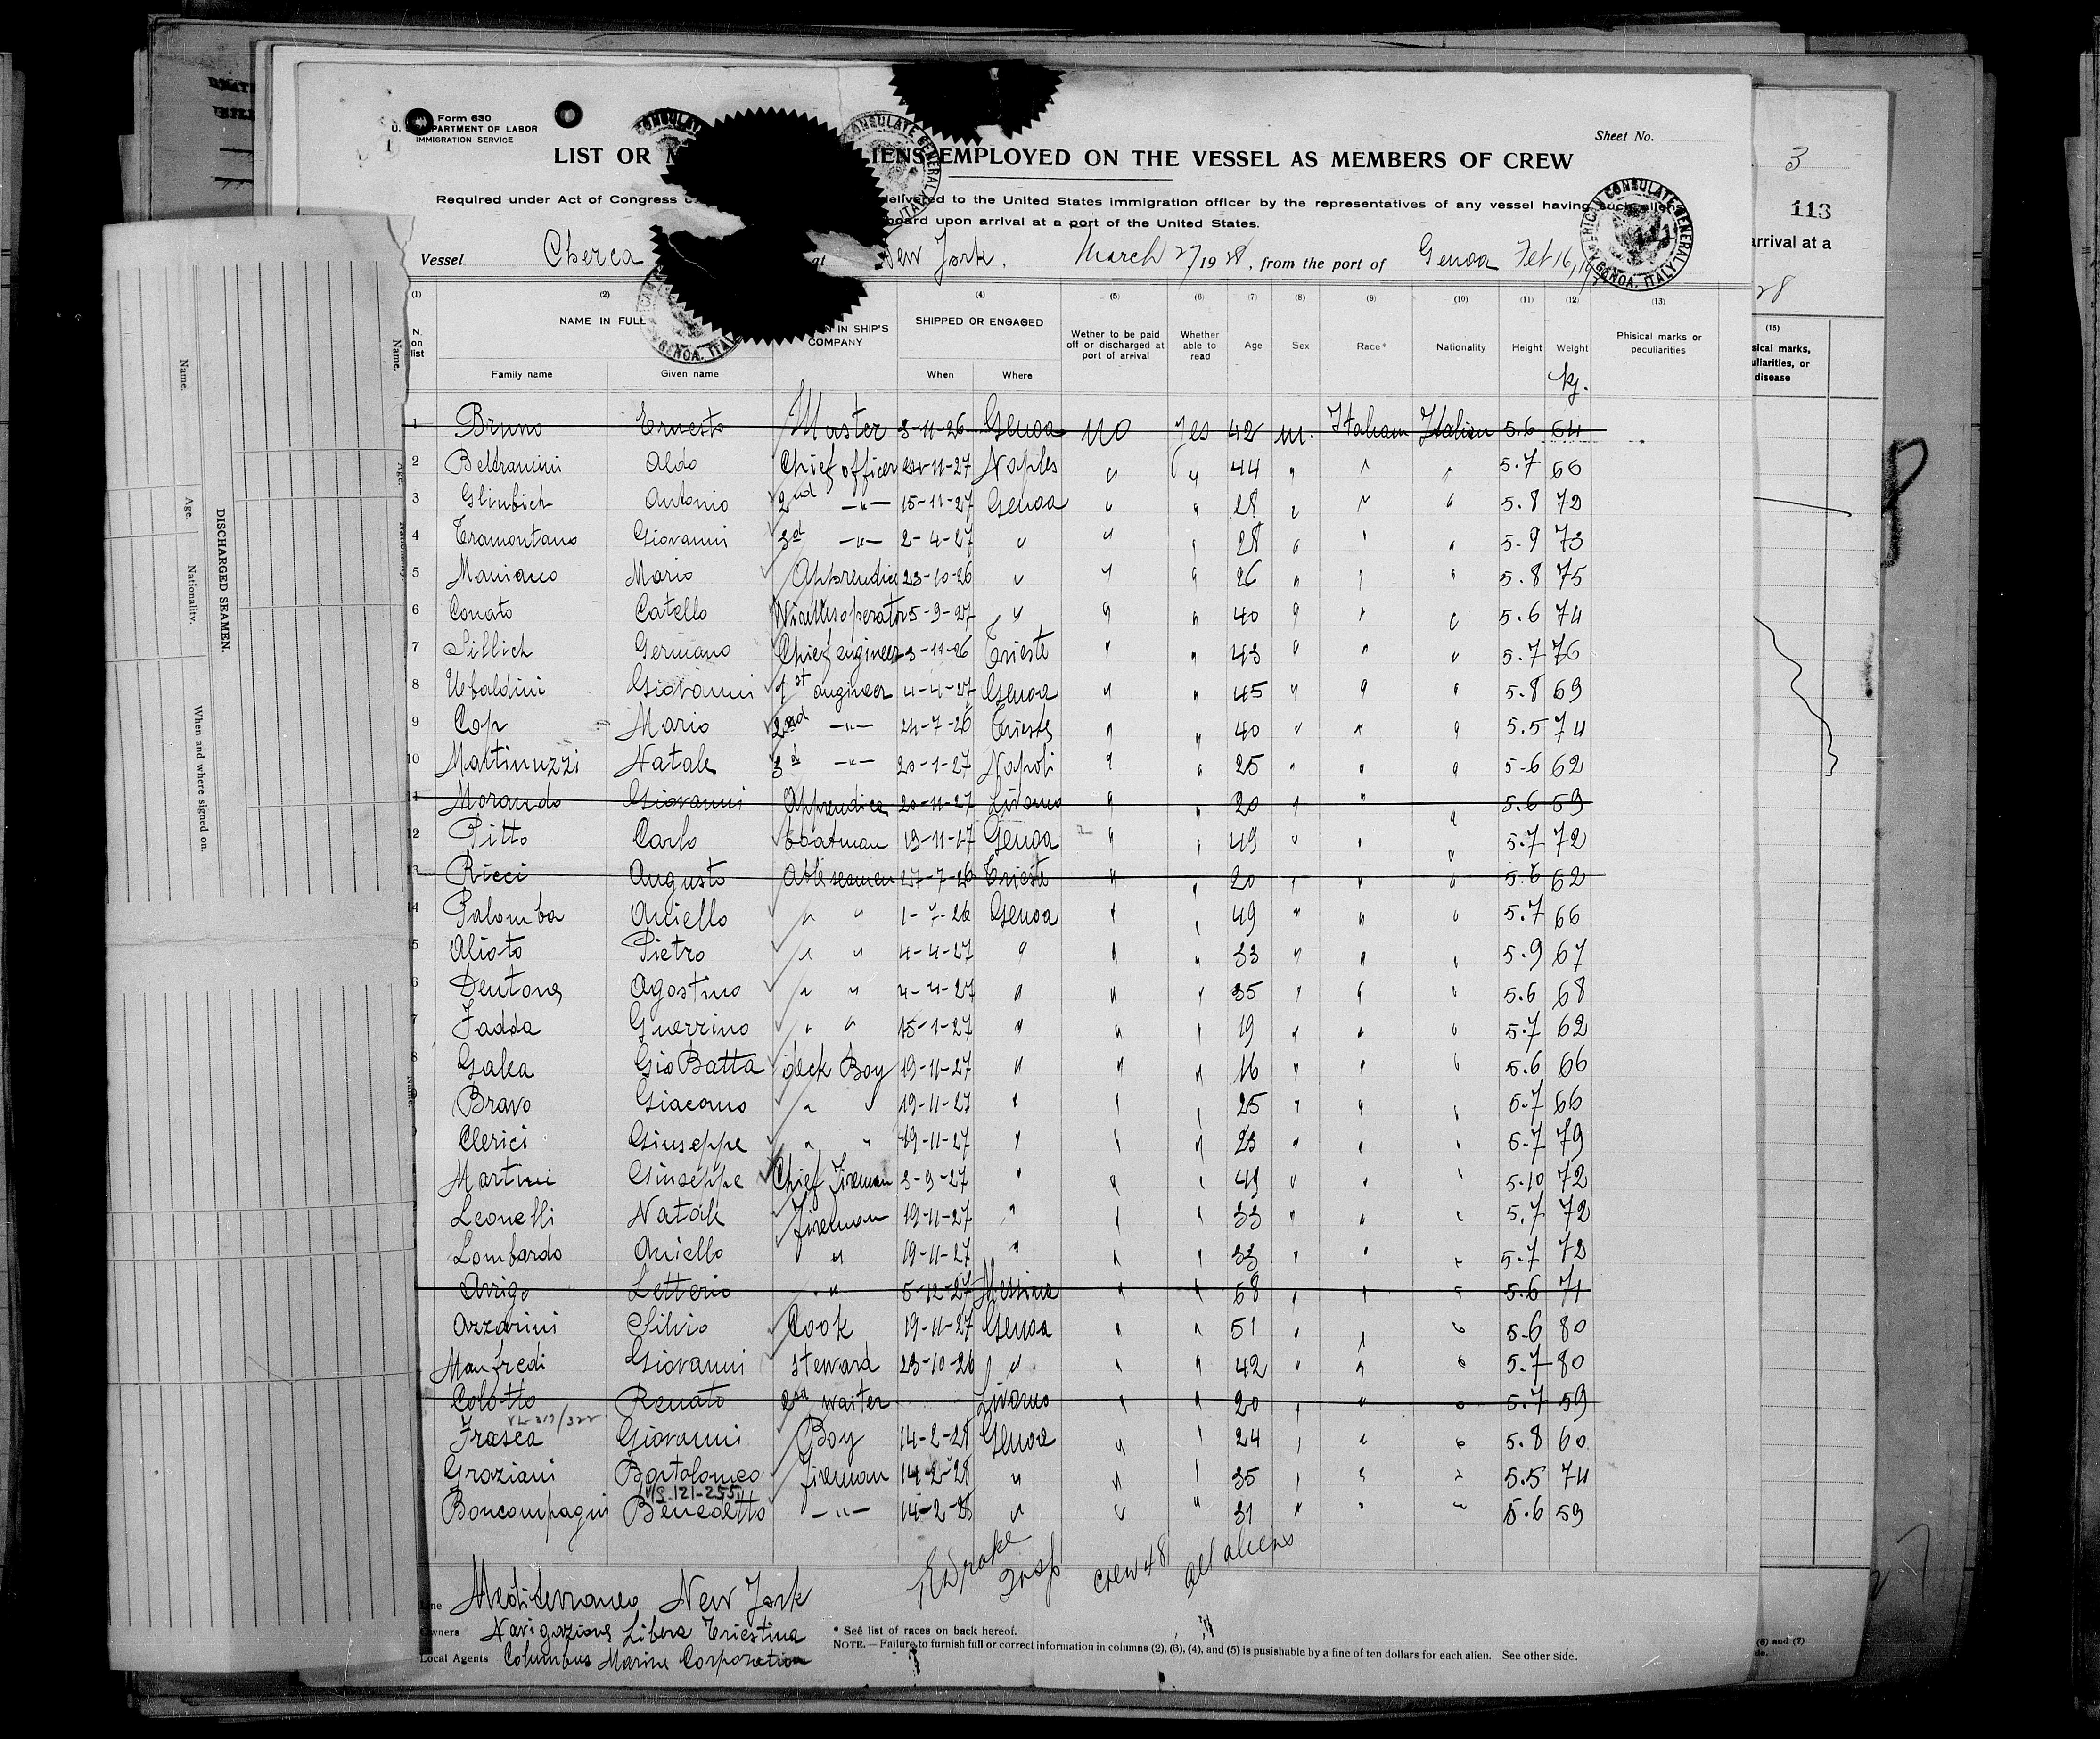 Form 630
U. DEPARTMENT OF LABOR
IMMIGRATION SERVICE
Sheet No.
LIST OR M IENS EMPLOYED ON THE VESSEL AS MEMBERS OF CREW
Required under Act of Congress delivered to the United States immigration officer by the representatives of any vessel having such aliens
board upon arrival at a port of the United States.
Vessel Cherca at New York, March 27 1928, from the port of Genoa Feb 16, 19
AMERICAN CONSULATE GENERAL GENOA, ITALY
(1) (2) (4) (5) (6) (7) (8) (9) (10) (11) (12) (13)
N. on list NAME IN FULL IN SHIP'S COMPANY SHIPPED OR ENGAGED Wether to be paid off or discharged at port of arrival Whether able to read Age Sex Race* Nationality Height Weight Phisical marks or peculiarities
Family name Given name When Where kg.
1 Bruno Ernesto Master 3-11-26 Genoa no yes 42 m. Italian Italian 5.6 64
2 Beltramini Aldo Chief officer 11-27 Naples " " 44 " " " 5.7 66
3 Glinbich Antonio 2nd -"- 15-11-27 Genoa " " 28 " " " 5.8 72
4 Tramontano Giovanni 3d -"- 2-4-27 " " " 28 " " " 5-9 73
5 Maniaco Mario Apprendice 23-10-26 " " " 26 " " " 5.8 75
6 Conato Catello operator 5-9-27 " " " 40 " " " 5.6 74
7 Sillich Germano Chief engineer 3-11-26 Trieste " " 43 " " " 5.7 76
8 Ubaldini Giovanni 1st engineer 4-4-27 Genoa " " 45 " " " 5.8 69
9 Cop Mario 2nd -"- 24-7-26 Trieste " " 40 " " " 5.5 74
10 Martinuzzi Natale 3d -"- 20-1-27 Napoli " " 25 " " " 5-6 62
11 Morando Giovanni Apprendice 20-11-27 Livorno " " 20 " " " 5.6 59
12 Pitto Carlo Boatman 19-11-27 Genoa " " 49 " " " 5.7 72
13 Ricci Augusto Able seamen 27-7-26 Trieste " " 20 " " " 5.6 62
14 Palomba Aniello " " 1-7-26 Genoa " " 49 " " " 5.7 66
5 Alioto Pietro " " 4-4-27 " " " 33 " " " 5.9 67
6 Dentone Agostino " " 4-4-27 " " " 35 " " " 5.6 68
7 Fadda Guerrino " " 15-1-27 " " " 19 " " " 5.7 62
8 Galea Gio Batta deck Boy 19-11-27 " " " 16 " " " 5.6 66
Bravo Giacomo " " 19-11-27 " " " 25 " " " 5.7 66
Clerici Giuseppe " " 19-11-27 " " " 23 " " " 5.7 79
Martini Giuseppe Chief Fireman 3-9-27 " " " 49 " " " 5.10 72
Leonelli Natale Fireman 19-11-27 " " " 33 " " " 5.7 72
Lombardo Aniello " 19-11-27 " " " 33 " " " 5.7 72
Arrigo Letterio " 5-12-27 Messina " " 58 " " " 5.6 71
Azzarini Silvio Cook 19-11-27 Genoa " " 51 " " " 5-6 80
Manfredi Giovanni steward 23-10-26 " " " 42 " " " 5.7 80
Colotto Renato 2nd waiter Livorno " " 20 " " " 5.7 59
Frasca Giovanni Boy 14-2-28 Genoa " " 24 " " " 5.8 60
Graziani Bartolomeo Fireman 14-2-28 " " " 35 " " " 5.5 74
121-255
Boncompagni Benedetto -"- 14-2-28 " " " 31 " " " 5.6 59
Drake Insp crew 48 all aliens
Line Mediterraneo New York
Owners Navigazione Libera Triestina
Local Agents Columbus Marine Corporation
* See list of races on back hereof.
NOTE. — Failure to furnish full or correct information in columns (2), (3), (4), and (5) is punishable by a fine of ten dollars for each alien. See other side.
DISCHARGED SEAMEN.
Name.
Age.
Nationality.
When and where signed on.
Name.
Age.
Nationality
Name.
3
113
arrival at a
28
(15)
sical marks,
uliarities, or
disease
(6) and (7)
de.